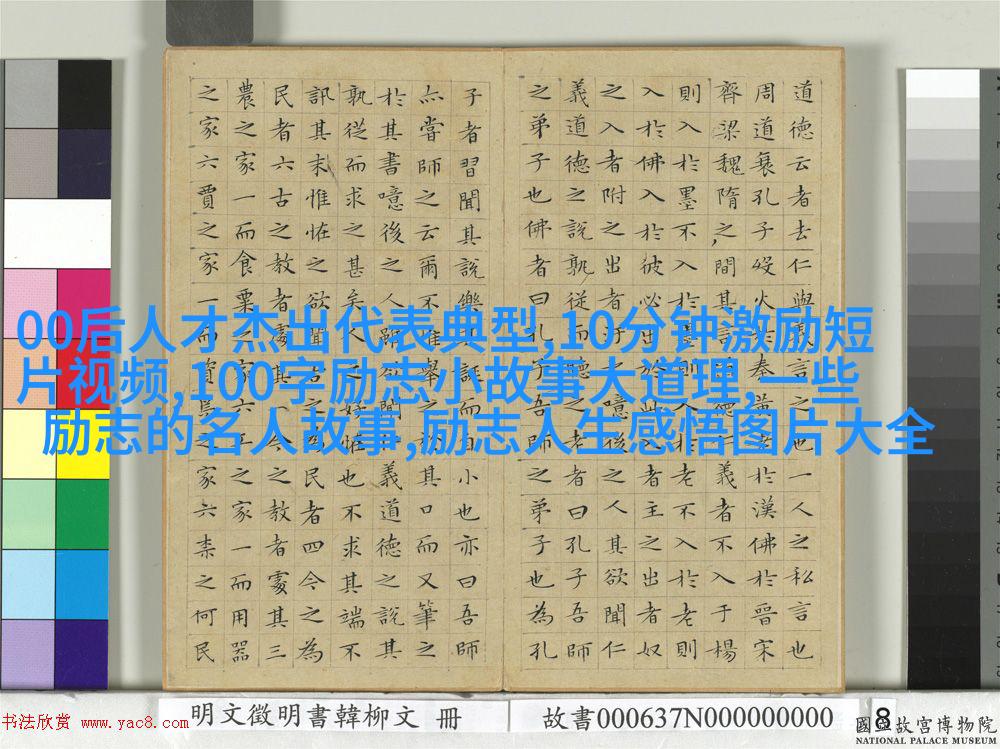 00后人才杰出代表典型,10分钟激励短
片视频,100字励志小故事大道理,一些
励志的名人故事,励志人生感悟图片大全
道德云者去仁與義言之也一人之私言也
周道衰孔子歿火于秦黃老於漢佛於晉宋
齊梁魏隋之間其言道德仁義者不入于楊
則入於墨不入於墨則入於老不入於老則
入於佛入於彼必出於此入者主之出者奴
之入者附之出者汙之噫後之人其欲聞仁
義道德之說孰從而聽之老者曰孔子吾師
之弟子也佛者曰孔子吾師之弟子也為孔
子者習聞其說樂其誕而自小也亦曰吾師
亦嘗師之云爾不惟舉之於其口而又筆之
於其書噫後之人雖欲聞仁義道德之說其
孰從而求之甚矣人之好怪也不求其端不
訊其末惟怪之欲聞古之為民者四今之為
民者六古之教者處其一今之教者處其三
農之家一而食粟之家六工之家一而用器
之家六賈之家一而資焉之家六柰之何民
明文徵明書韓柳文 冊
故書000637N000000000
8
國立故宮博物院
NATIONAL PALACE MUSEUM
书法欣赏 www.yac8.com